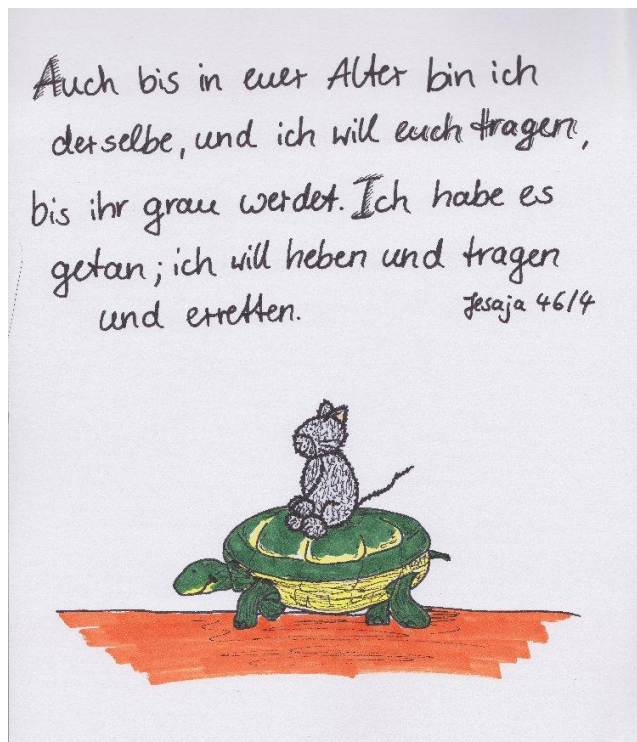 Auch bis in euer Alter bin ich
derselbe, und ich will euch tragen,
bis ihr grau werdet. Ich habe es
getan; ich will heben und tragen
und erretten.
Jesaja 46/4